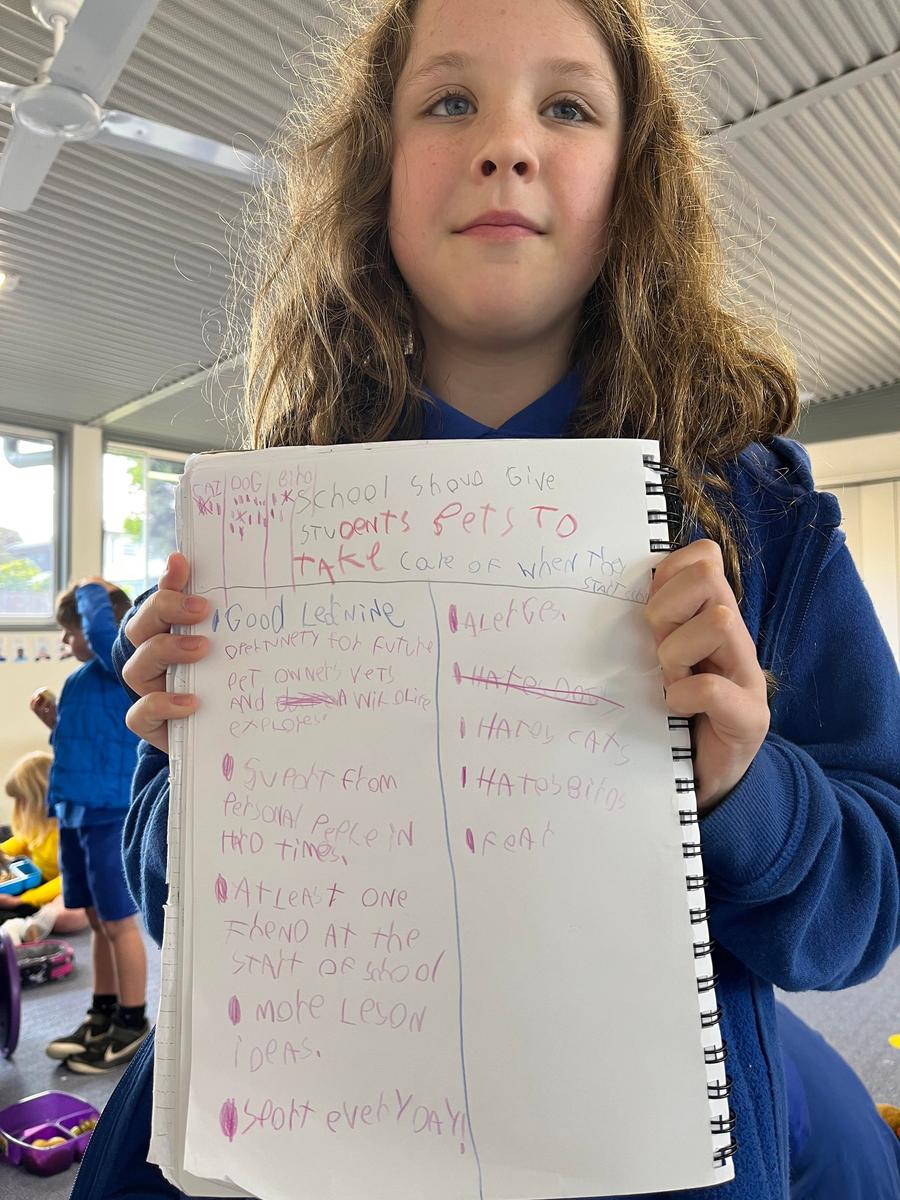 CAT DOG BIRD
SCHOOL ShouD GIVE
STUDENTS PETS TO
TAKE CARE OF WHEN They
START
GOOD LERNINE
OPERTUNETY FOR FUTURE
PET OWNERS VETS
AND WILDLIFE
EXPLORES
SUPORT FROM
PERSONAL PEPLE IN
HARD TIMES.
AT LEAST ONE
FREND AT THE
START OF SCHOOL
MORE LESON
IDEAS.
SPORT EVERYDAY!
ALERGES.
HATES DOGS
HATES CATS
HATES BIRDS
FEAR